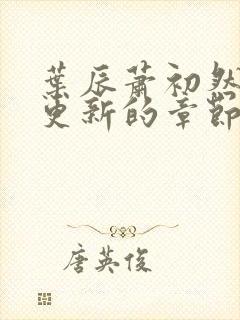 葉辰蕭初然
更新的章節
唐英俊